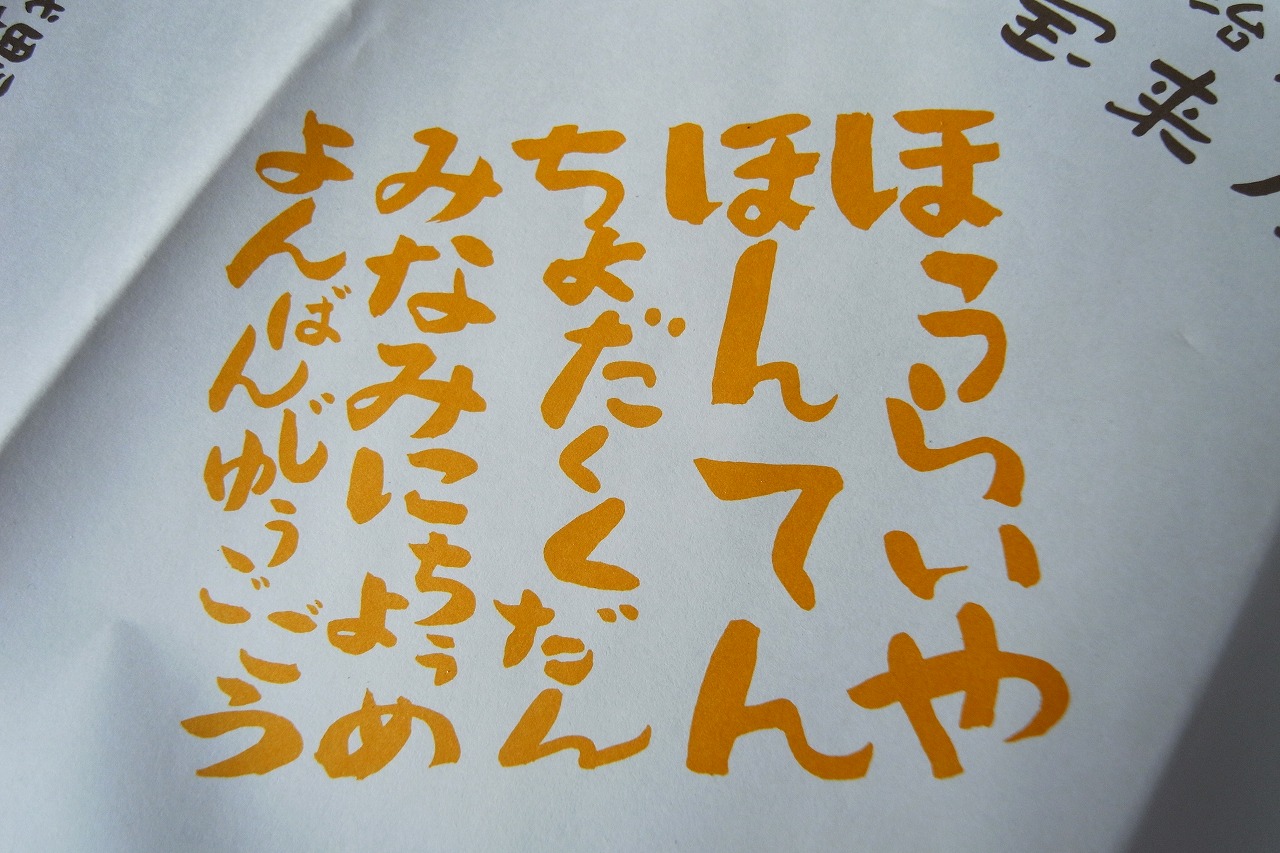 宝来
ほうらいや
ほんてん
ちよだくくだん
みなみにちようめ
よんばんじゆうごごう